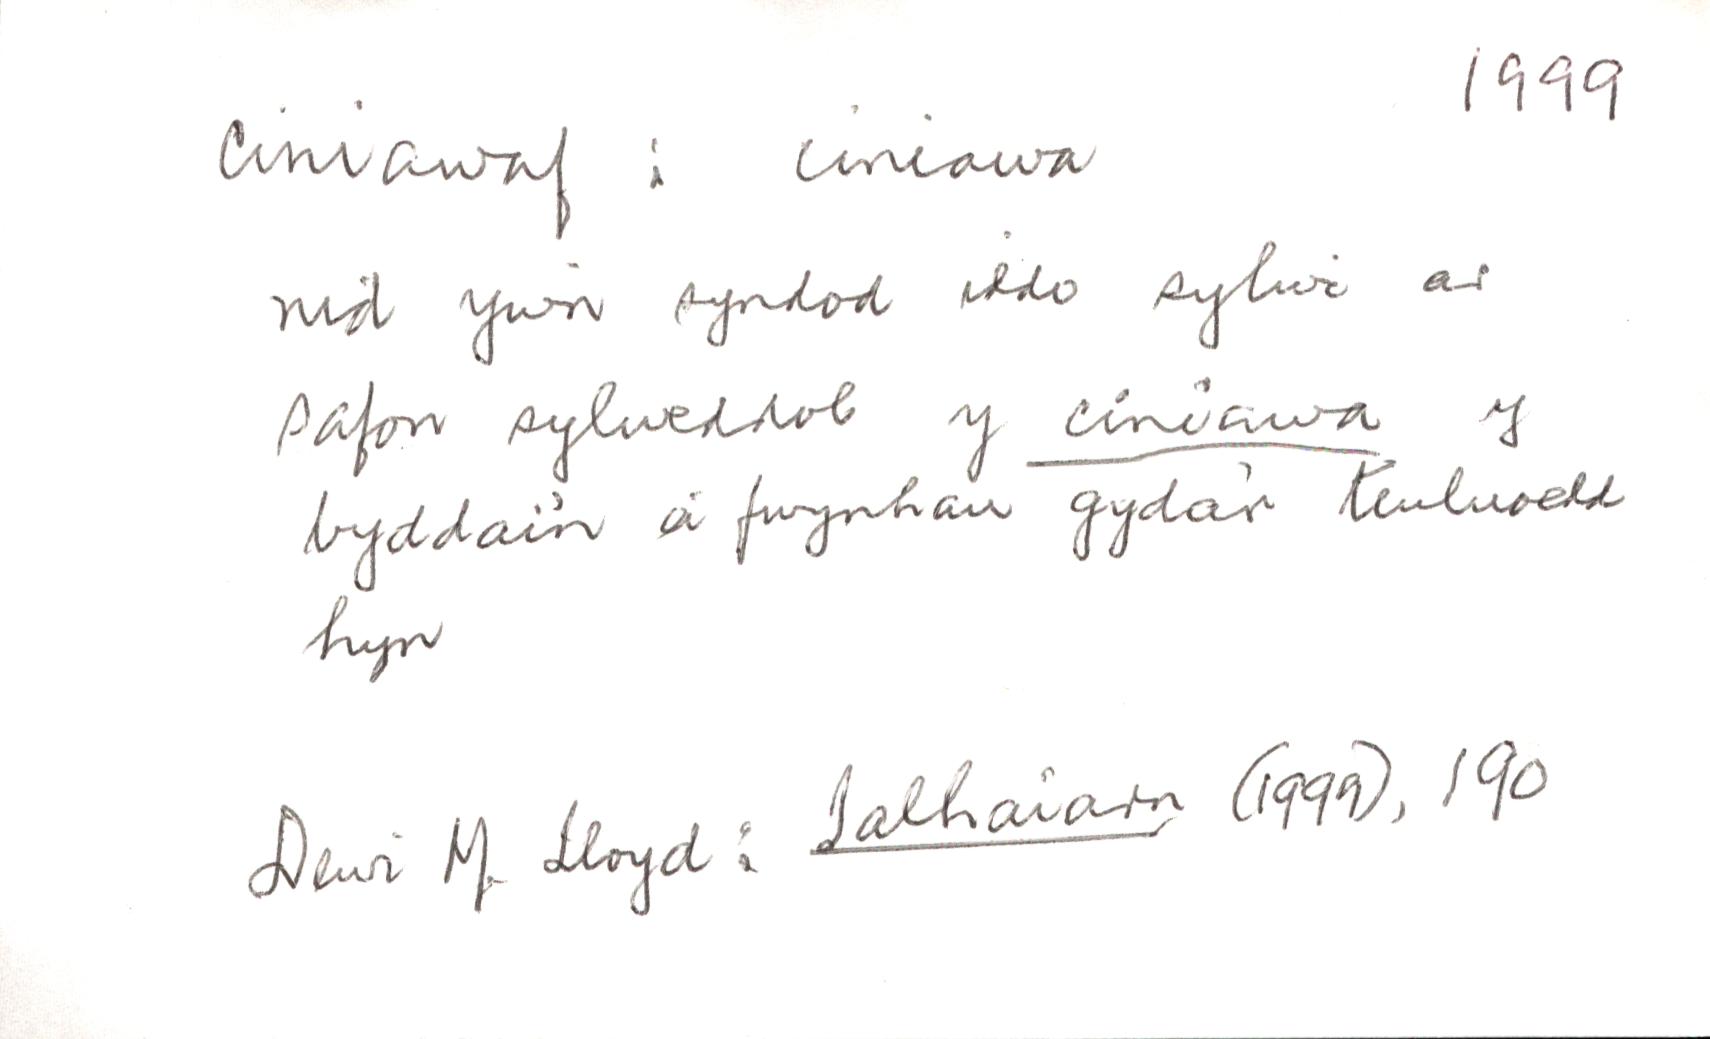 1999
ciniawaf : ciniawa
nid yw'n syndod iddo sylwi ar
safon sylweddol y ciniawa y
byddai'n ei fwynhau gyda'r teuluoedd
hyn
Dewi M. Lloyd : Talhaiarn (1999), 190